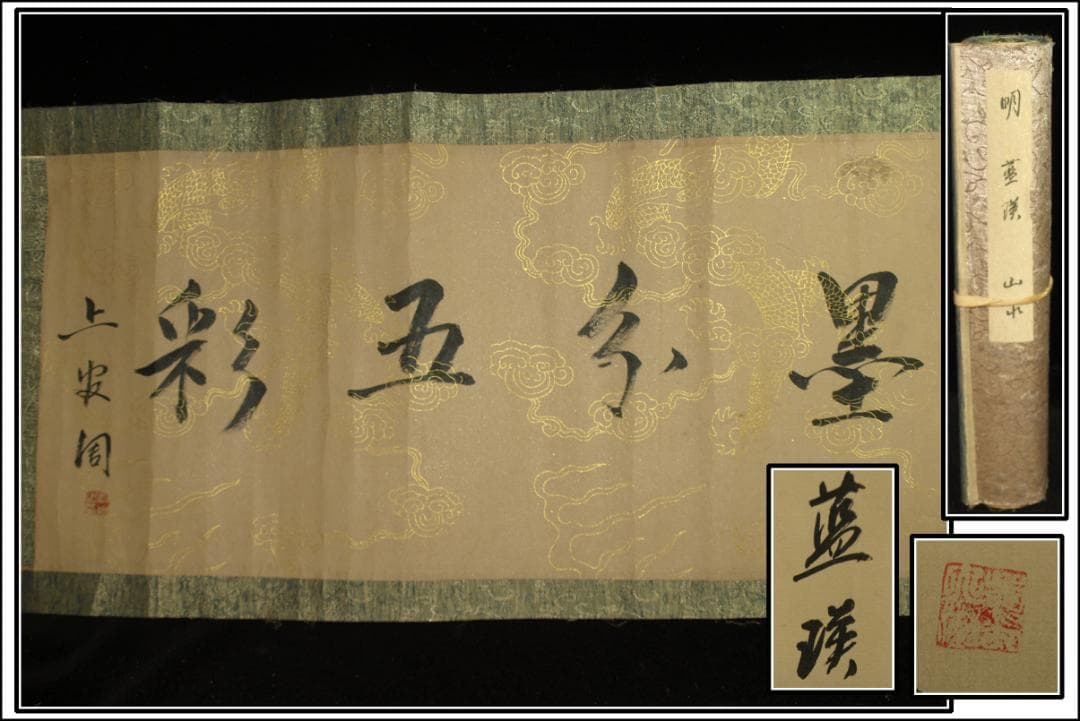 墨分五彩
上
周
明 藍瑛 山水
藍瑛